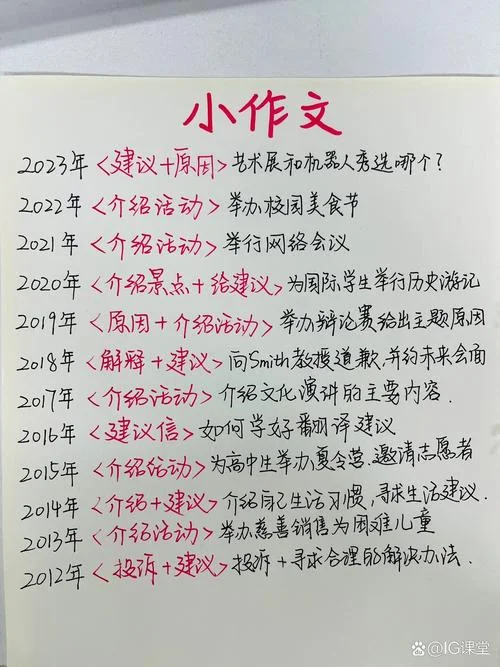 小作文
2023年<建议+原因>艺术展和机器人秀选哪个?
2022年<介绍活动>举办校园美食节
2021年<介绍活动>举行网络会议
2020年<介绍景点+给建议>为国际学生举行历史游记
2019年<原因+介绍活动>举办辩论赛给出主题原因
2018年<解释+建议>向Smith教授道歉,并约未来会面
2017年<介绍活动>介绍文化演讲的主要内容.
2016年<建议信>如何学好翻译建议
2015年<介绍活动>为高中生举办夏令营.邀请志愿者
2014年<介绍+建议>介绍自己生活习惯,寻求生活建议.
2013年<介绍活动>举办慈善销售为困难儿童
2012年<投诉+建议>投诉+寻求合理的解决办法.
@IG课堂